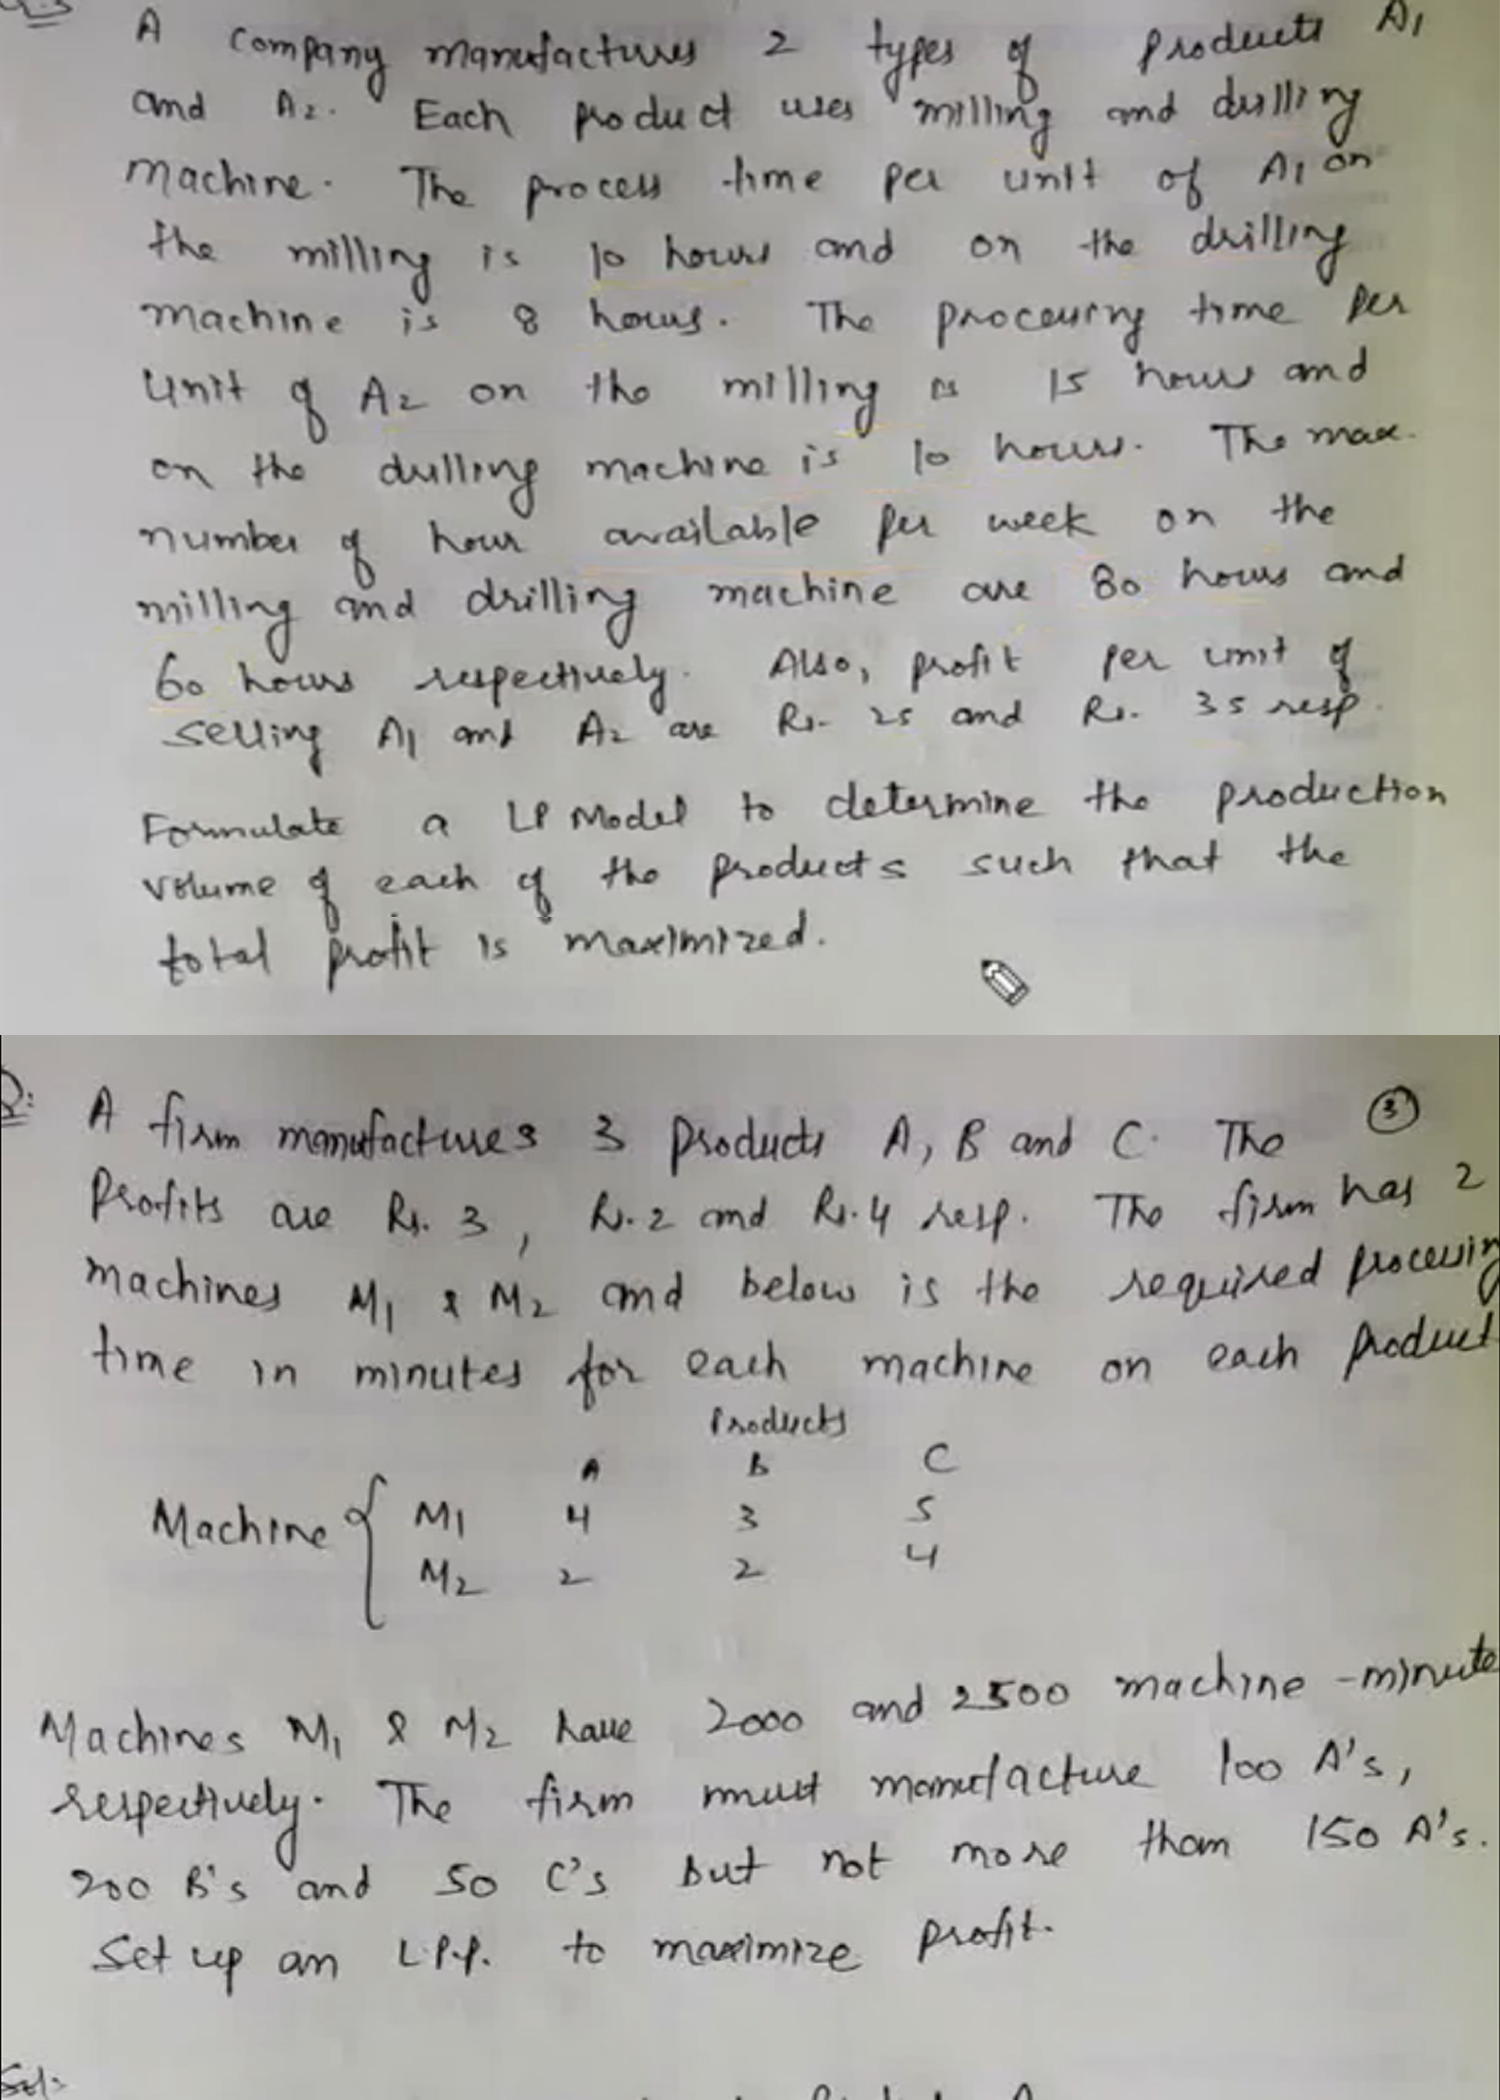 A company manufactures 2 types of Products A1
and A2. Each product uses milling and drilling
machine. The process time per unit of A1 on
the milling is 10 hours and on the drilling
machine is 8 hours. The processing time Per
Unit of A2 on the milling is 15 hours and
on the drilling machine is 10 hours. The max.
number of hour available per week on the
milling and drilling machine are 80 hours and
60 hours respectively. Also, profit per unit of
selling A1 and A2 are Rs. 25 and Rs. 35 resp.
Formulate a LP Model to determine the production
volume of each of the products such that the
total profit is maximized.
Q: A firm manufactures 3 Products A, B and C. The ③
Profits are Rs. 3, Rs. 2 and Rs. 4 resp. The firm has 2
machines M1 & M2 and below is the required processing
time in minutes for each machine on each product
Products
A B C
Machine { M1 4 3 5
M2 2 2 4
Machines M1 & M2 have 2000 and 2500 machine-minute
respectively. The firm must manufacture 100 A's,
200 B's and 50 C's but not more than 150 A's.
Set up an L.P.P. to maximize profit.
Sol: